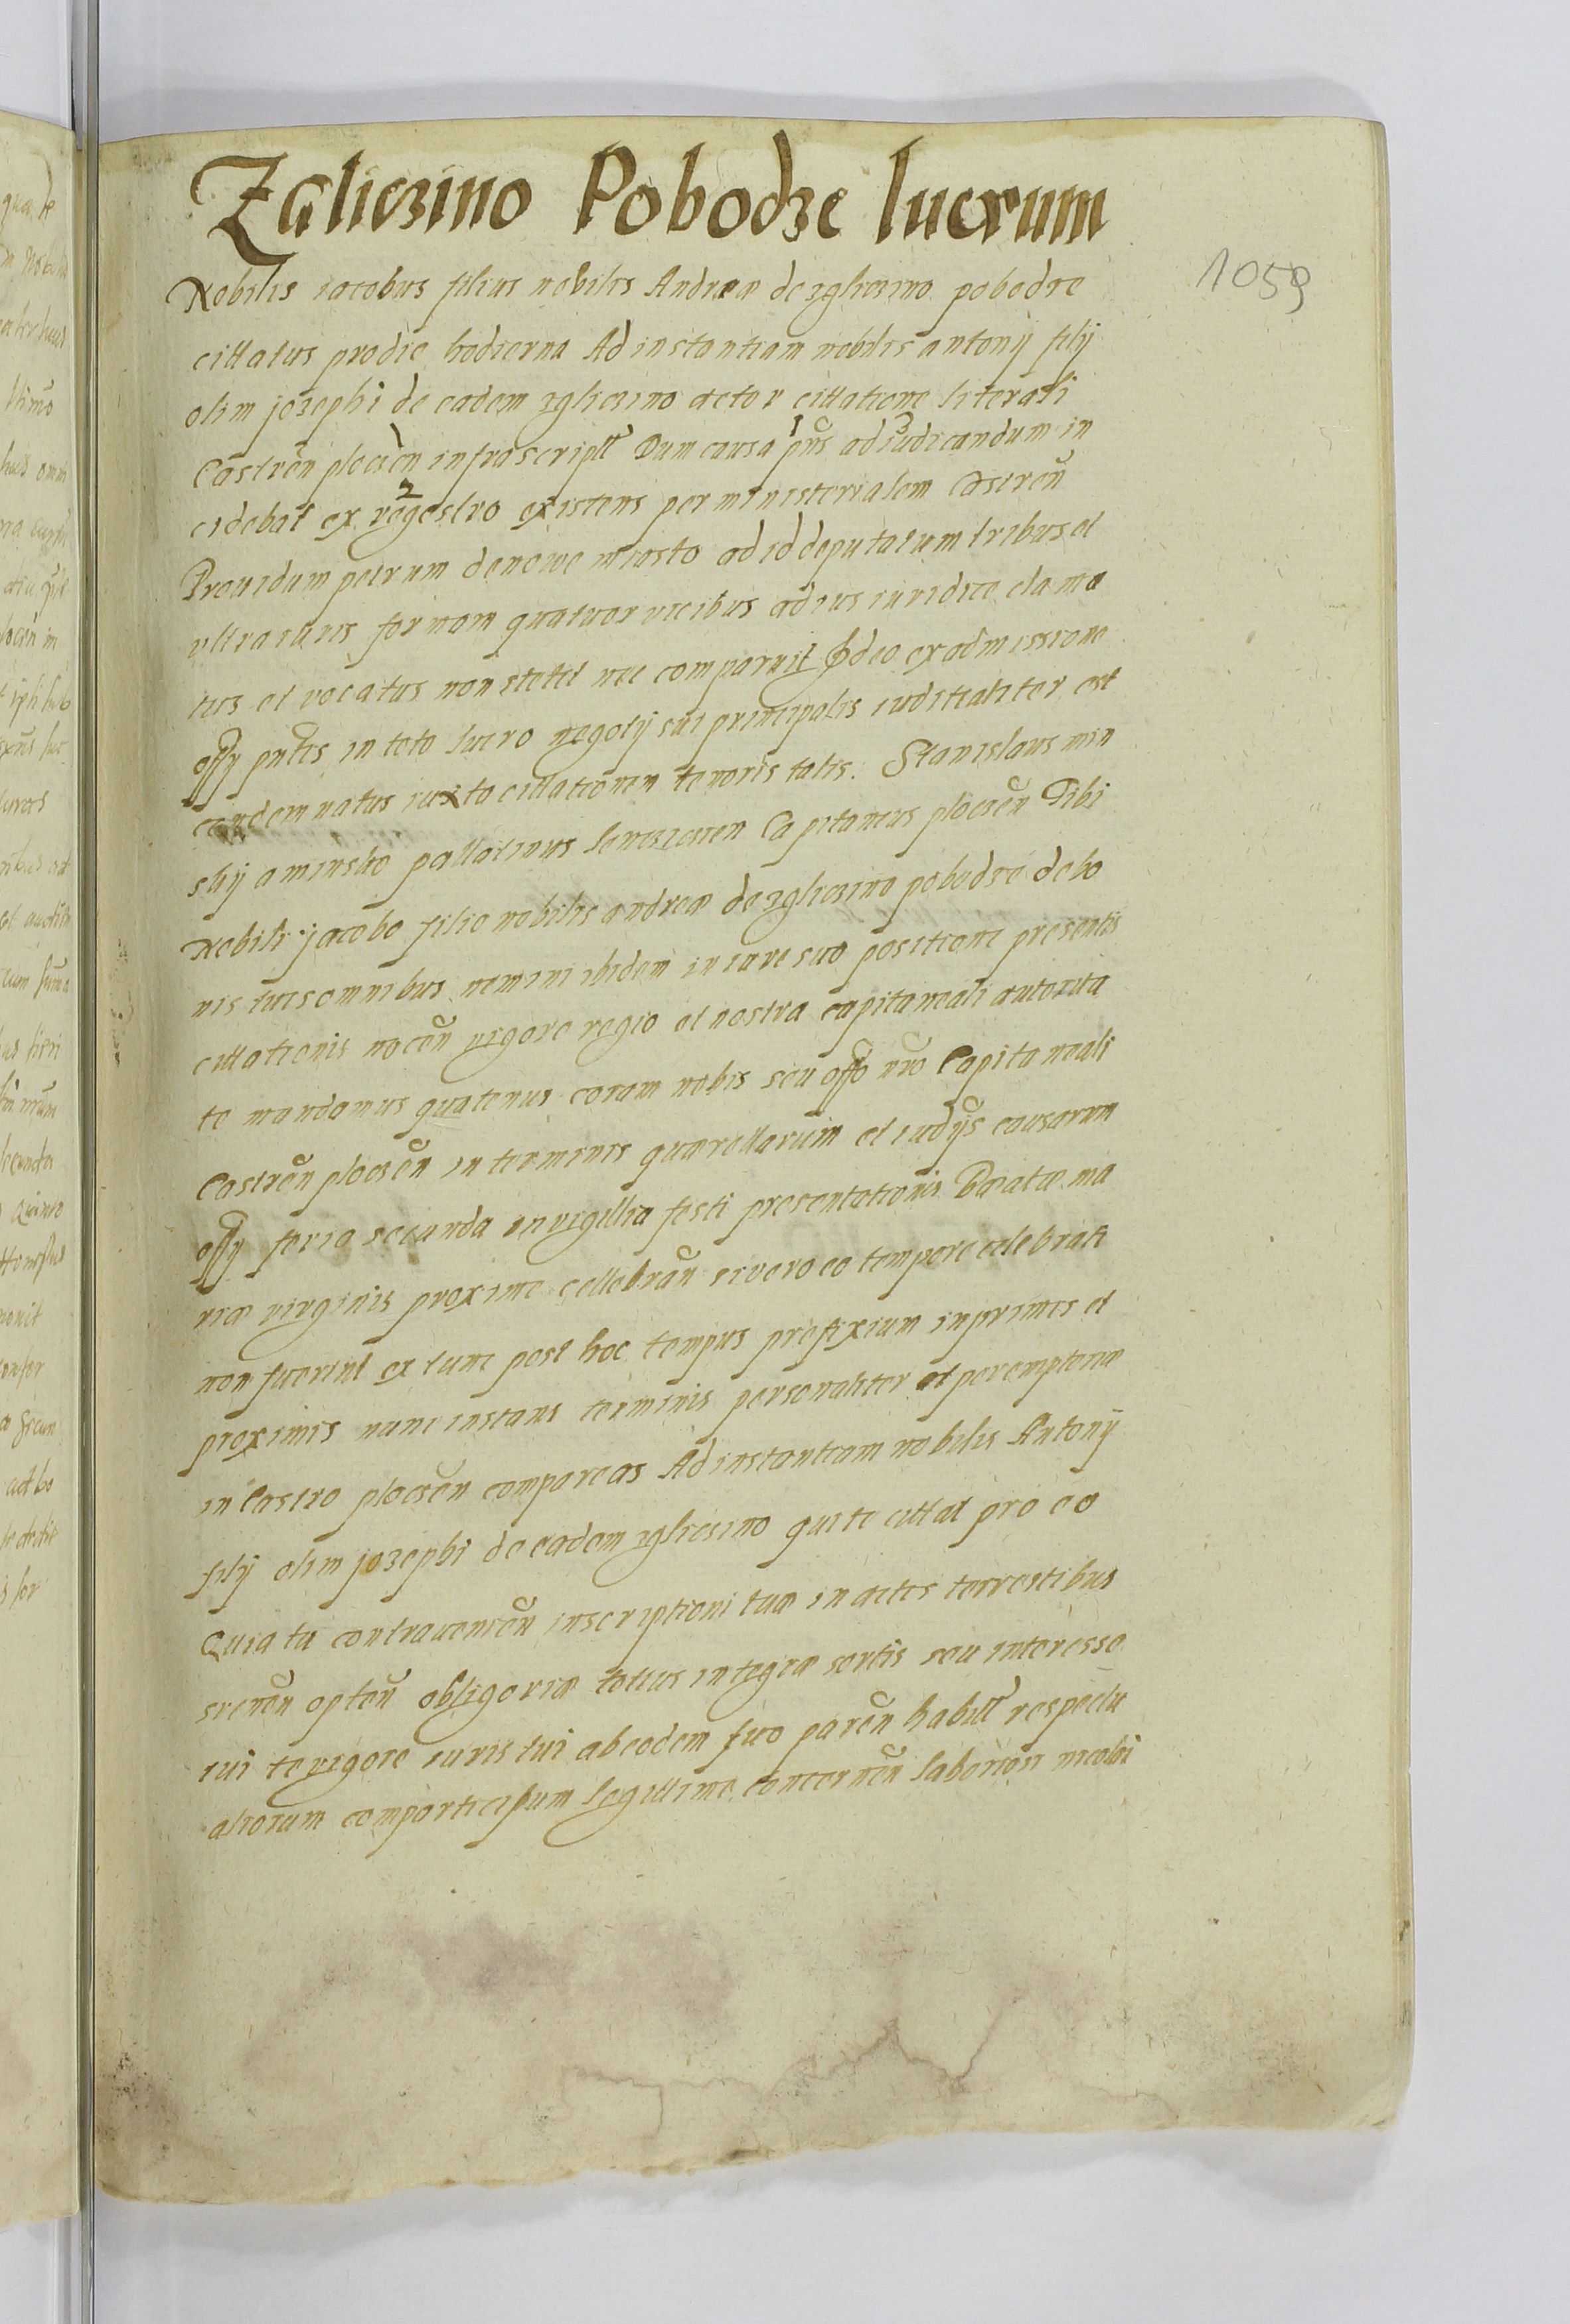 Zgliczino Pobodze lucrum
1059
Nobilis iacobus filius nobilis Andreæ de zgliczino pobodze
cittatus prodie hodierna Ad instantiam nobilis antonÿ filÿ
olim jozephi de eadem zgliczino actor cittatione literali
Castren̄ plocen̄ infrascript Dum causa pn̄s ad iudicandum in
cidebat ex regestro existens per ministerialem Castren̄
Prouidum petrum de nowe miasto ad id deputatum tribus et
vltra iuris formam quatuor vicibus ad ius iuridice clama
tus et vocatus non stetit nec comparuit Ideo ex admissione
offÿ pn̄tis in toto lucro negotÿ sui principalis iuditialiter est
condemnatus iuxta cittationem tenoris talis. Stanislaus min
skÿ a minsko pallatinus lencziczen Capitaneus plocen̄ Tibi
Nobili jacobo filio nobilis andreæ de zgliczino pobodze de bo
nis tuis omnibus nemini ibidem in iure suo positione presentis
cittationis nocen̄ vigore regio et nostra capitaneali autorita
te mandamus quatenus coram nobis seu offo nr̄o Capitaneali
Castren̄ plocen̄ in terminis quærellarum et iudÿs causarum
offÿ feria secunda in vigillia festi presentationis Beatæ ma
riæ virginis proxime cellebran̄ si vero eo tempore celebrati
non fuerint ex tunc post hoc tempus prefixium inprimis et
proximis nunc instans terminis personaliter et peremptoriæ
in Castro plocen̄ compareas Ad instantiam nobilis Antonÿ
filÿ olim jozephi de eadem zgliczino qui te cittat pro eo
Quia tu contrauenien̄ inscriptioni tuæ in actis terrestibus
srenen̄ opten̄ obligoriæ tottus integræ sortis seu interesse
tui te vigore iuris tui ab eodem suo paren̄ habitt respectu
aliorum comparticipum legittime concernen̄ laboriosi nicolai